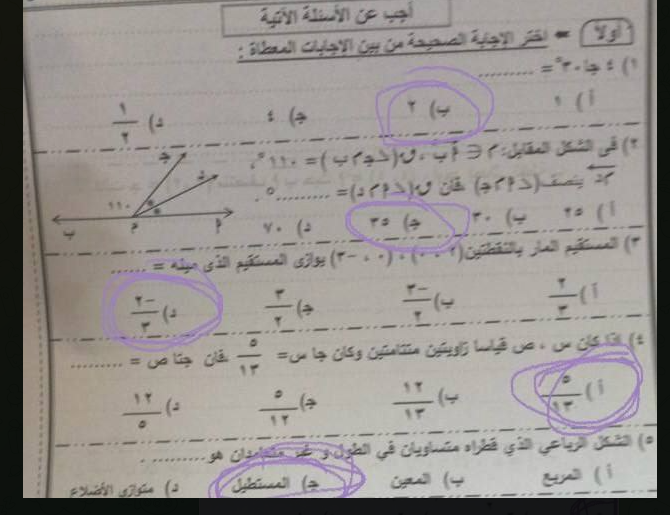 أجب عن الأسئلة الآتية
أولا ⇐ اختر الإجابة الصحيحة من بين الاجابات المعطاة :
١) ٤ جا ٣٠° = ..........
أ) ١ ب) ٢ ج) ٤ د) ١/٢
٢) فى الشكل المقابل: م ∈ أب ، ق(<ج م ب) = ١١٠°،
م د ينصف (<أ م ج) فان ق(<أ م د) = .........°.
أ) ٢٥ ب) ٣٠ ج) ٣٥ د) ٧٠
ج د ١١٠ ب م أ
٣) المستقيم المار بالنقطتين (٢ ، ٠) ، (٠ ، -٣) يوازى المستقيم الذى ميله = ......
أ) ٢/٣ ب) -٣/٢ ج) ٣/٢ د) -٢/٣
٤) اذا كان س ، ص قياسا زاويتين متتامتين وكان جا س = ٥/١٣ فان جتا ص = .........
أ) ٥/١٣ ب) ١٢/١٣ ج) ٥/١٢ د) ١٢/٥
٥) الشكل الرباعي الذي قطراه متساويان في الطول و غير متعامدان هو..........
أ) المربع ب) المعين ج) المستطيل د) متوازى الأضلاع